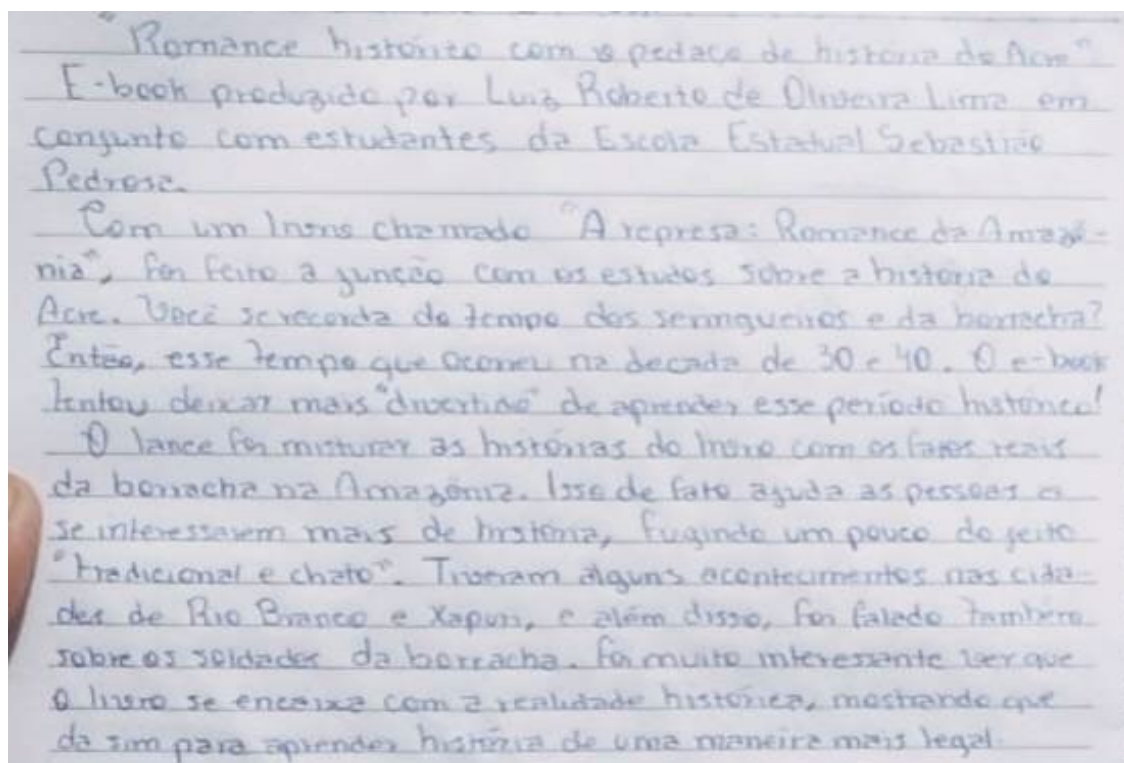 "Romance histórico com o pedaço de história do Acre"
E-book produzido por Luiz Roberto de Oliveira Lima em
conjunto com estudantes da Escola Estadual Sebastião
Pedrosa.
Com um livro chamado "A represa: Romance da Amazô-
nia", foi feito a junção com os estudos sobre a história do
Acre. Você se recorda do tempo dos seringueiros e da borracha?
Então, esse tempo que ocorreu na decada de 30 e 40. O e-book
tentou deixar mais "divertido" de aprender esse período histórico!
O lance foi misturar as histórias do livro com os fatos reais
da borracha na Amazônia. Isso de fato ajuda as pessoas a
se interessarem mais de história, fugindo um pouco do jeito
"tradicional e chato". Tiveram alguns acontecimentos nas cida-
des de Rio Branco e Xapuri, e além disso, foi falado também
sobre os soldados da borracha. Foi muito interessante ver que
o livro se encaixa com a realidade histórica, mostrando que
da sim para aprender história de uma maneira mais legal.